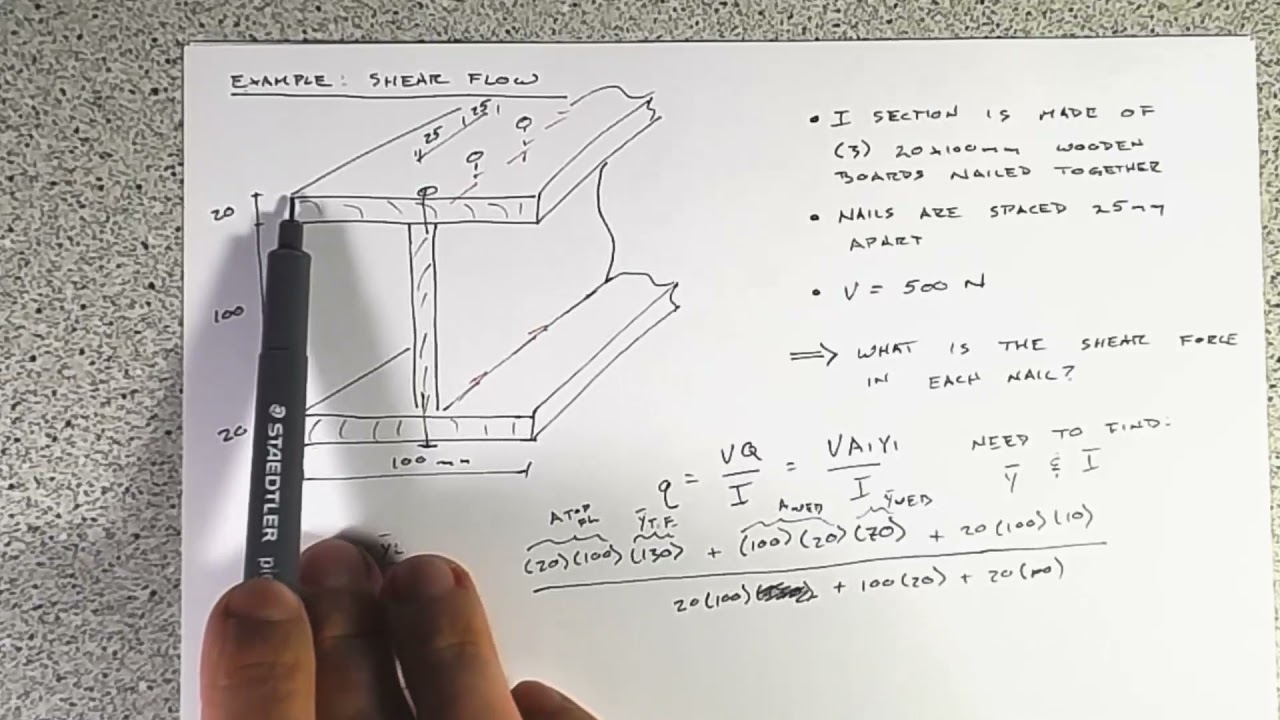 EXAMPLE: SHEAR FLOW
25
25
20
100
20
100 mm
• I SECTION IS MADE OF
(3) 20x100mm WOODEN
BOARDS NAILED TOGETHER
• NAILS ARE SPACED 25mm
APART
• V = 500 N
⇒ WHAT IS THE SHEAR FORCE
IN EACH NAIL?
q = VQ/I = VA₁Y₁/I
NEED TO FIND:
ȳ & I
A TOP FL. ȳ T.F. A WEB ȳ WEB
(20)(100)(130) + (100)(20)(70) + 20(100)(10)
20(100) + 100(20) + 20(100)
STAEDTLER